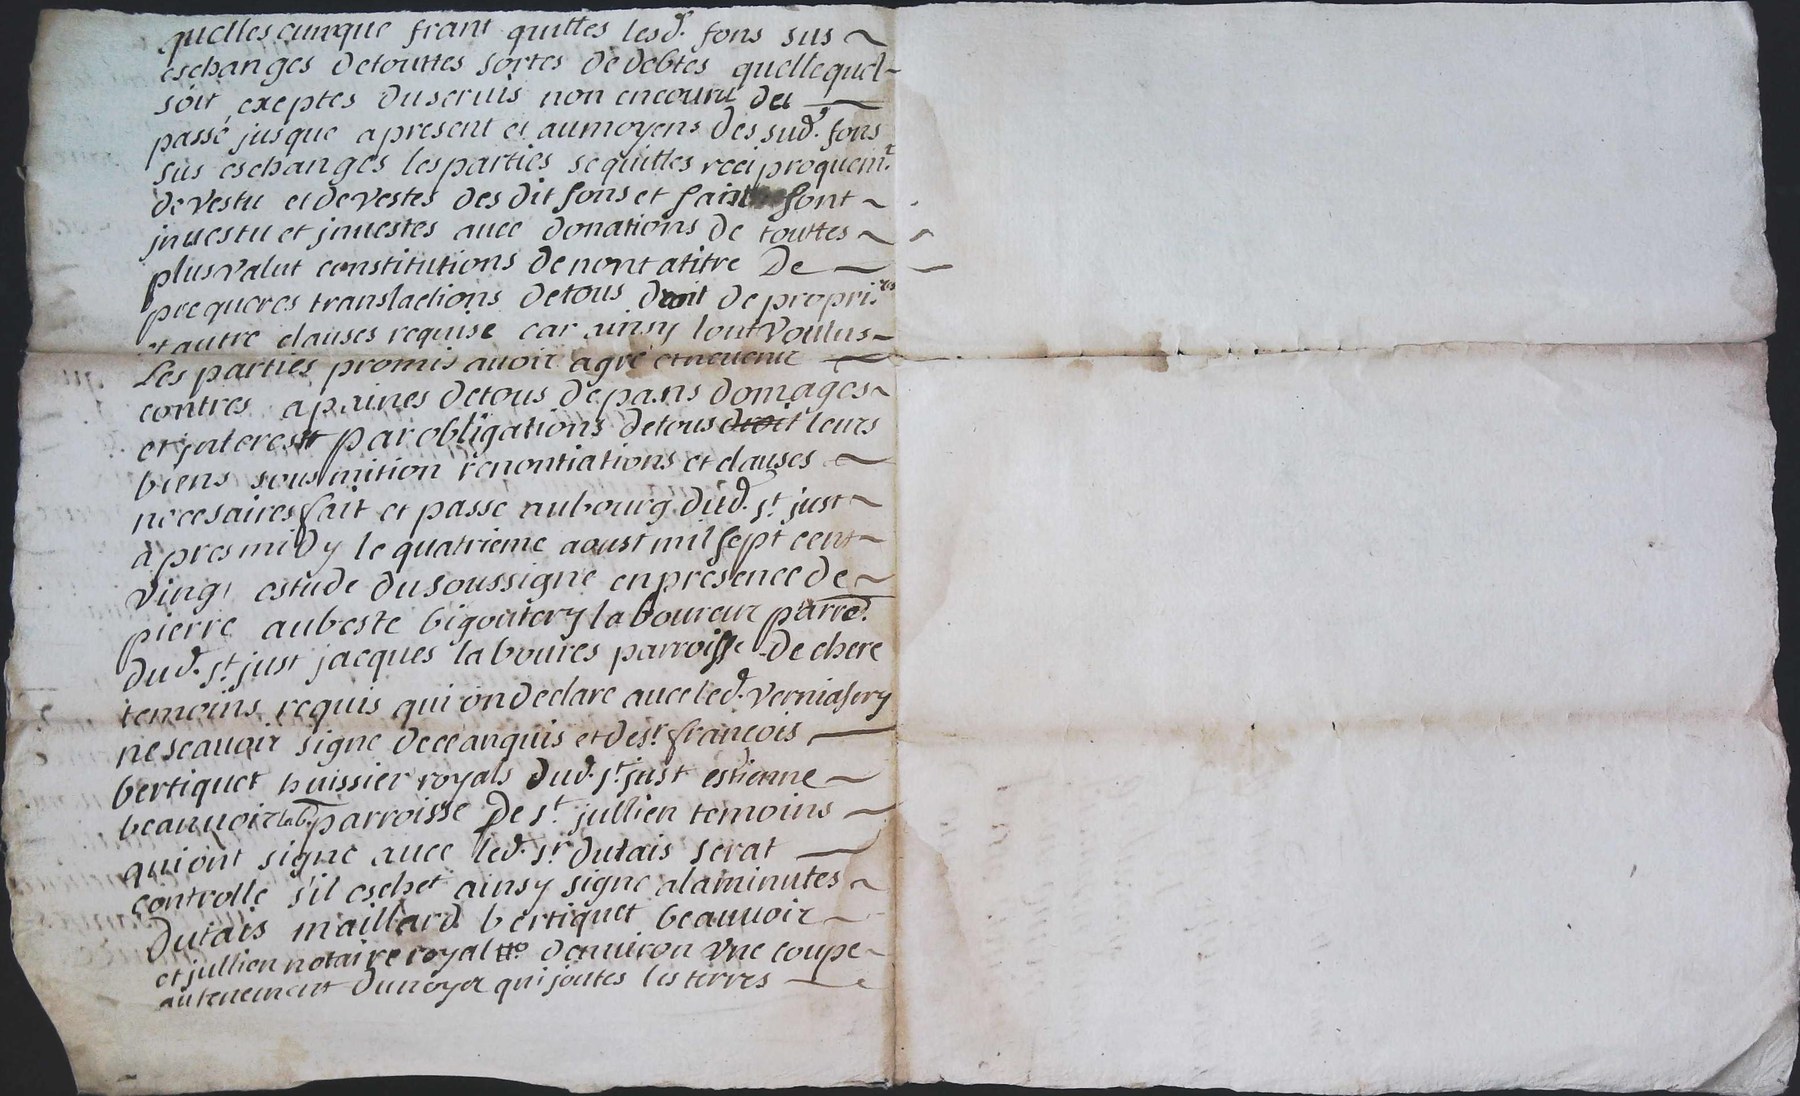 quellescunque franc quittes lesd. fons sus ~
eschanges detouttes sortes de debtes quelle quel-
soit, exeptes duseruis non encouru dei —
passé jusque apresent et aumoyens des sud. fons
sus eschanges lesparties sequittes reciproquemt
devestu et devestes des dit fons et font ~
jnuestu et jnuestes auec donations de touttes ~
plus valut constitutions de nont atitre De —
prequeres translactions detous droit de propri.res
et autre clauses requise car ainsy lont voulus -
Les parties promis auoir agré etneuenir —
contres apaines detous depans domages ~
et jnterest par obligations detous droit leurs
biens sousmition renontiations et clauses ~
necesaires fait et passe aubourg dud. st just ~
apres midy le quatrieme aoust mil sept cent ~
ving estude du soussigne enpresence de ~
pierre aubeste bigoutery laboureur parre.
dud. st just jacques laboures parroisse de chere
temoins requis qui on declare auec led. verniasery
ne scauoir signe dece anquis et de sr francois —
bertiquet huissier royals dud. st just estienne ~
beauuoir lab. parroisse De st. jullien temoins ~
qui ont signe auec led. sr dutais serat —
controlle s'il eschet ainsy signe alaminutes ~
Dutais maillard bertiquet beauuoir ~
et jullien notaire royal denuiron vne coupe ~
autenement dunoyer qui joutes les terres —